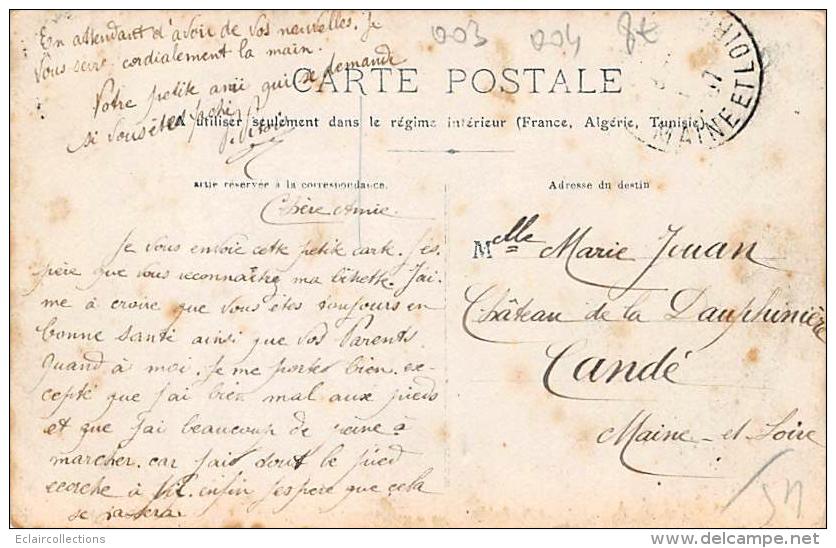 En attendant d'avoir de vos nouvelles. Je
Vous serre cordialement la main.
Votre petite amie qui se demande
si vous êtes
003 004 8€
CARTE POSTALE
A utiliser seulement dans le régime intérieur (France, Algérie, Tunisie)
MAINE ET LOIRE
artie réservée à la correspondance.
Adresse du destin
Chère Amie.
Je vous envoie cette petite carte. J'es-
père que vous reconnaître ma binette. J'ai-
me à croire que vous êtes toujours en
bonne santé ainsi que vos Parents.
Quand à moi. Je me porte bien. ex-
cepté que j'ai bien mal aux pieds
et que j'ai beaucoup de peine à
marcher. car j'ai tout le pied
écorché à enfin j'espère que cela
se passera.
Melle Marie Jouan
Château de la Dauphinière
Candé
Maine-et-Loire
Eclaircollections
delcampe.net